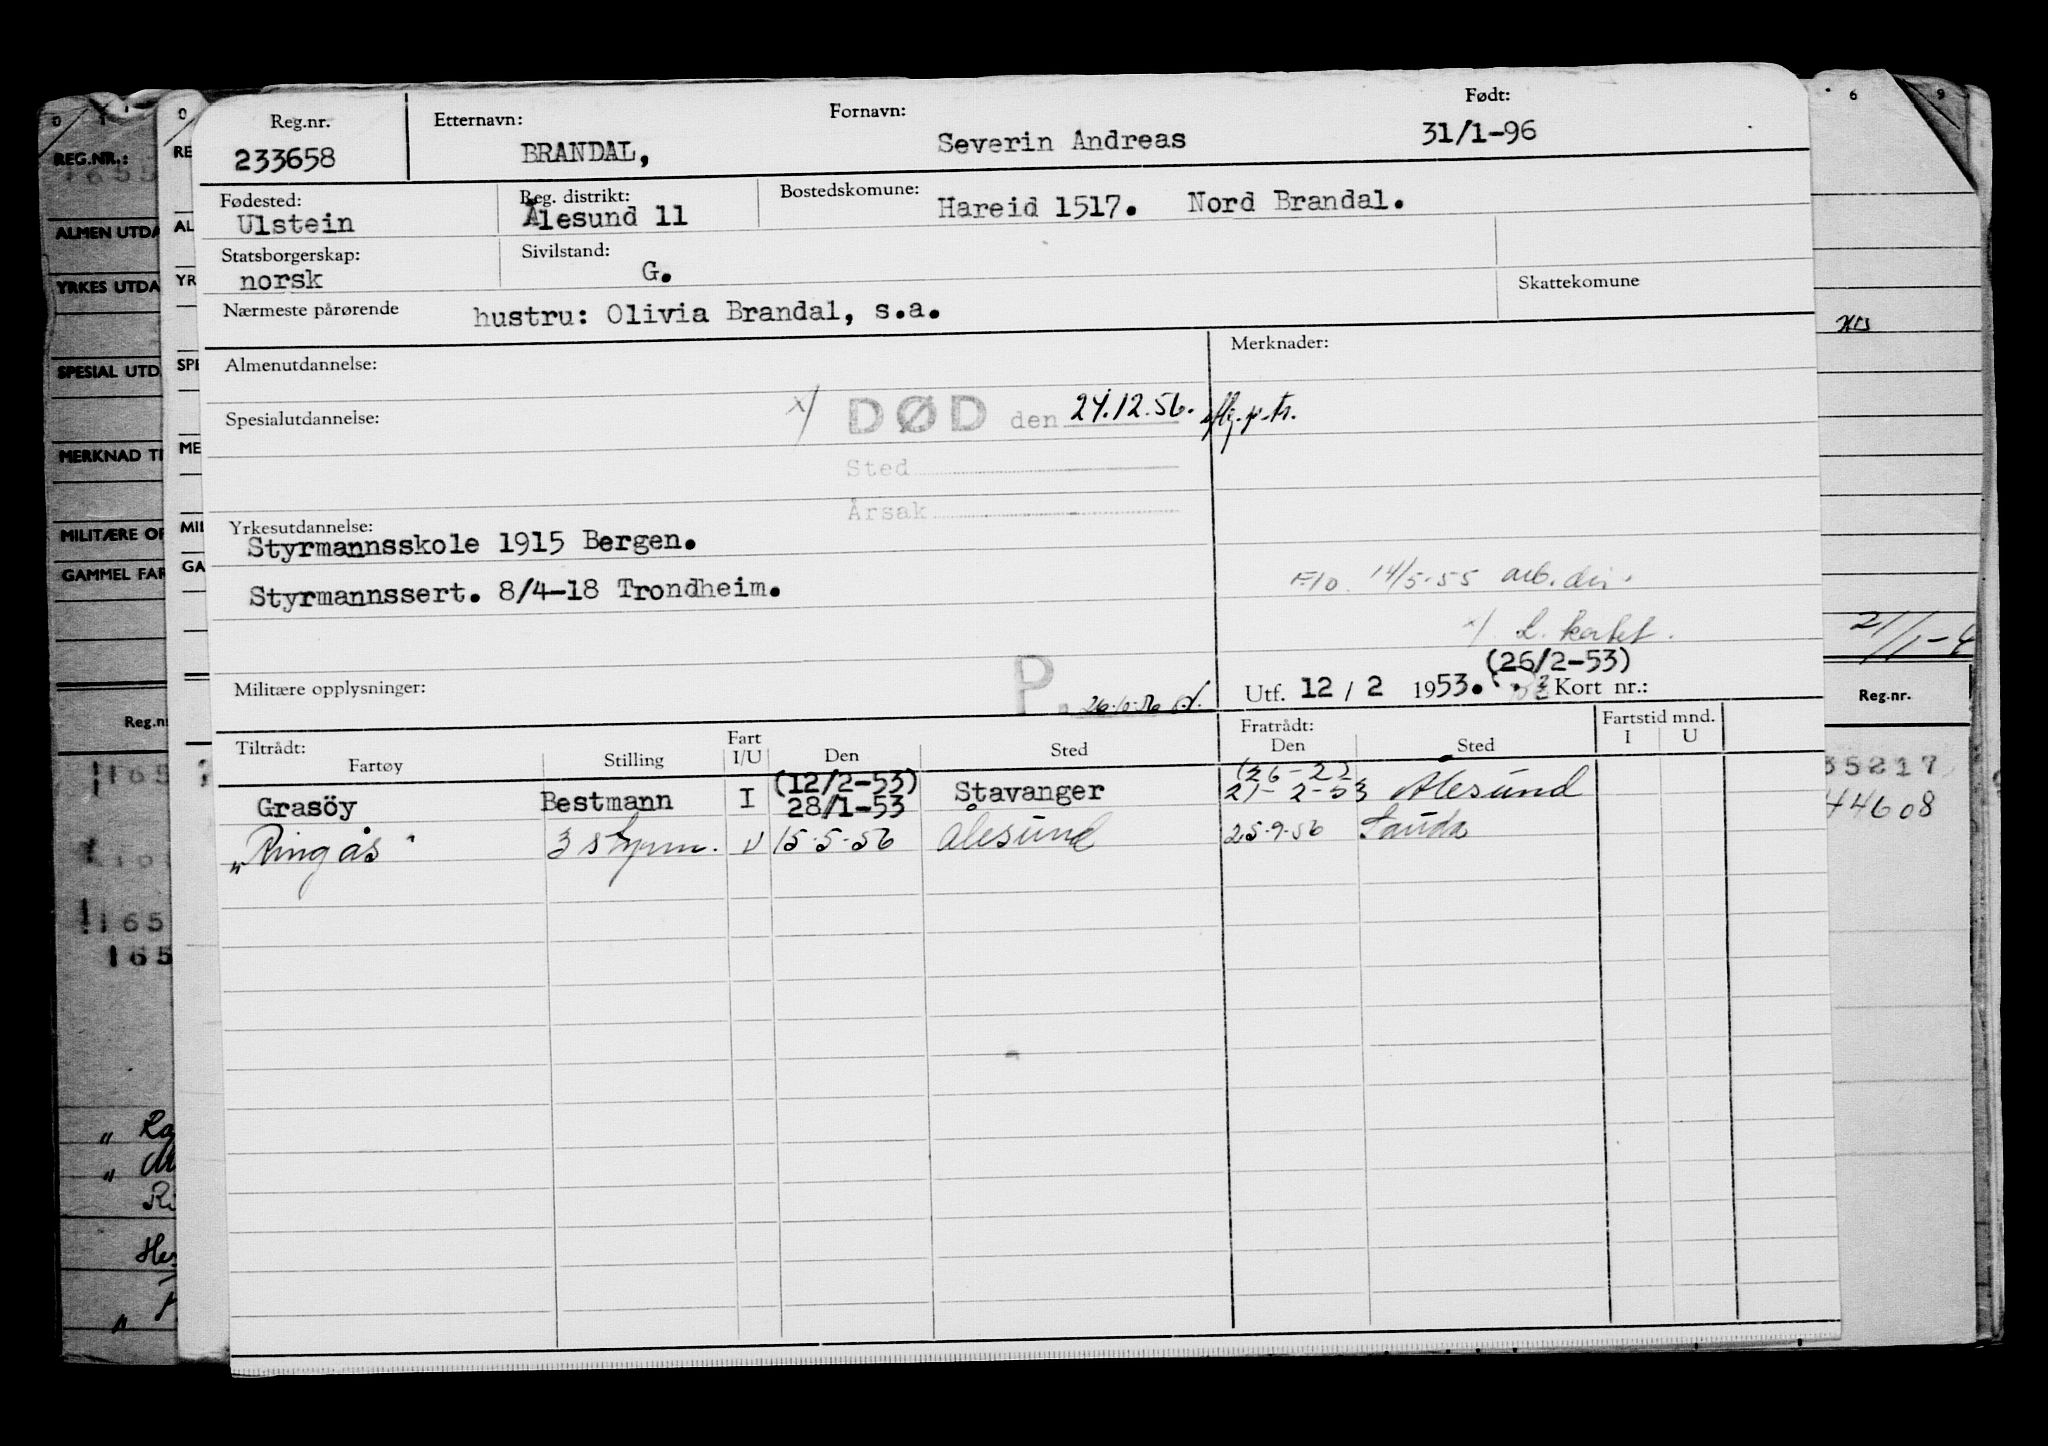 Reg.nr. Etternavn: Fornavn: Født:
233658 BRANDAL, Severin Andreas 31/1-96
Fødested: Reg. distrikt: Bostedskomune:
Ulstein Ålesund 11 Hareid 1517. Nord Brandal.
Statsborgerskap: Sivilstand:
norsk G. Skattekomune
Nærmeste pårørende hustru: Olivia Brandal, s.a.
Almenutdannelse: Merknader:
Spesialutdannelse: x/ DØD den 24.12.56.
Sted
Årsak
Yrkesutdannelse:
Styrmannsskole 1915 Bergen.
14/5-55 arb. dir.
Styrmannssert. 8/4-18 Trondheim.
x/
(26/2-53)
Militære opplysninger: P. 26.10.56 Utf. 12 / 2 1953. Kort nr.:
Tiltrådt: Fratrådt: Fartstid mnd.
Fartøy Stilling Fart I/U Den Sted Den Sted I U
(12/2-53) (26-2
Grasöy Bestmann I 28/1-53 Stavanger 21-2-53 Ålesund
"Ringås" 3 styrm. U 15-5-56 Ålesund 25-9-56 Sauda
REG.NR.:
ALMEN UTDA
YRKES UTDA
SPESIAL UTD.
MERKNAD TI
MILITÆRE OP
GAMMEL FAR
Reg.n
165
165
165
RE
AL
YR
SPE
ME
MIL
GA
0 1 0
6 9
21/1-4
Reg.nr.
35217
44608
" Ra
" M
Ri
He
"